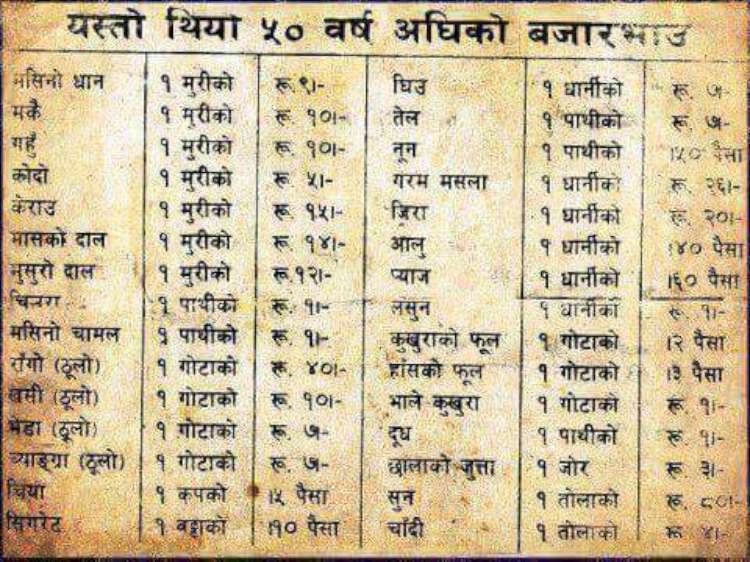 यस्तो थियो ५० वर्ष अघिको बजारभाउ
मसिनो धान १ मुरीको रू.९।- घिउ १ धार्नीको रू. ७।-
मकै १ मुरीको रू. १०।- तेल १ पाथीको रू. ७।-
गहुँ १ मुरीको रू. १०।- नून १ पाथीको ।५० पैसा
कोदो १ मुरीको रू. ५।- गरम मसला १ धार्नीको रू. २६।-
केराउ १ मुरीको रू. १५।- जिरा १ धार्नीको रू. २०।-
मासको दाल १ मुरीको रू. १४।- आलु १ धार्नीको ।४० पैसा
मुसुरो दाल १ मुरीको रू.१२।- प्याज १ धार्नीको ।६० पैसा
चिउरा १ पाथीको रू. १।- लसुन १ धार्नीको रू. १।-
मसिनो चामल १ पाथीको रू. १।- कुखुराको फूल १ गोटाको ।२ पैसा
राँगो (ठूलो) १ गोटाको रू. ४०।- हाँसको फूल १ गोटाको ।३ पैसा
खसी (ठूलो) १ गोटाको रू. १०।- भाले कुखुरा १ गोटाको रू. १।-
भेडा (ठूलो) १ गोटाको रू. ७।- दूध १ पाथीको रू. १।-
च्याङ्ग्रा (ठूलो) १ गोटाको रू. ७।- छालाको जुत्ता १ जोर रू. ३।-
चिया १ कपको ।५ पैसा सुन १ तोलाको रू. ८०।-
सिगरेट १ बट्टाको ।१० पैसा चाँदी १ तोलाको रू ४।-